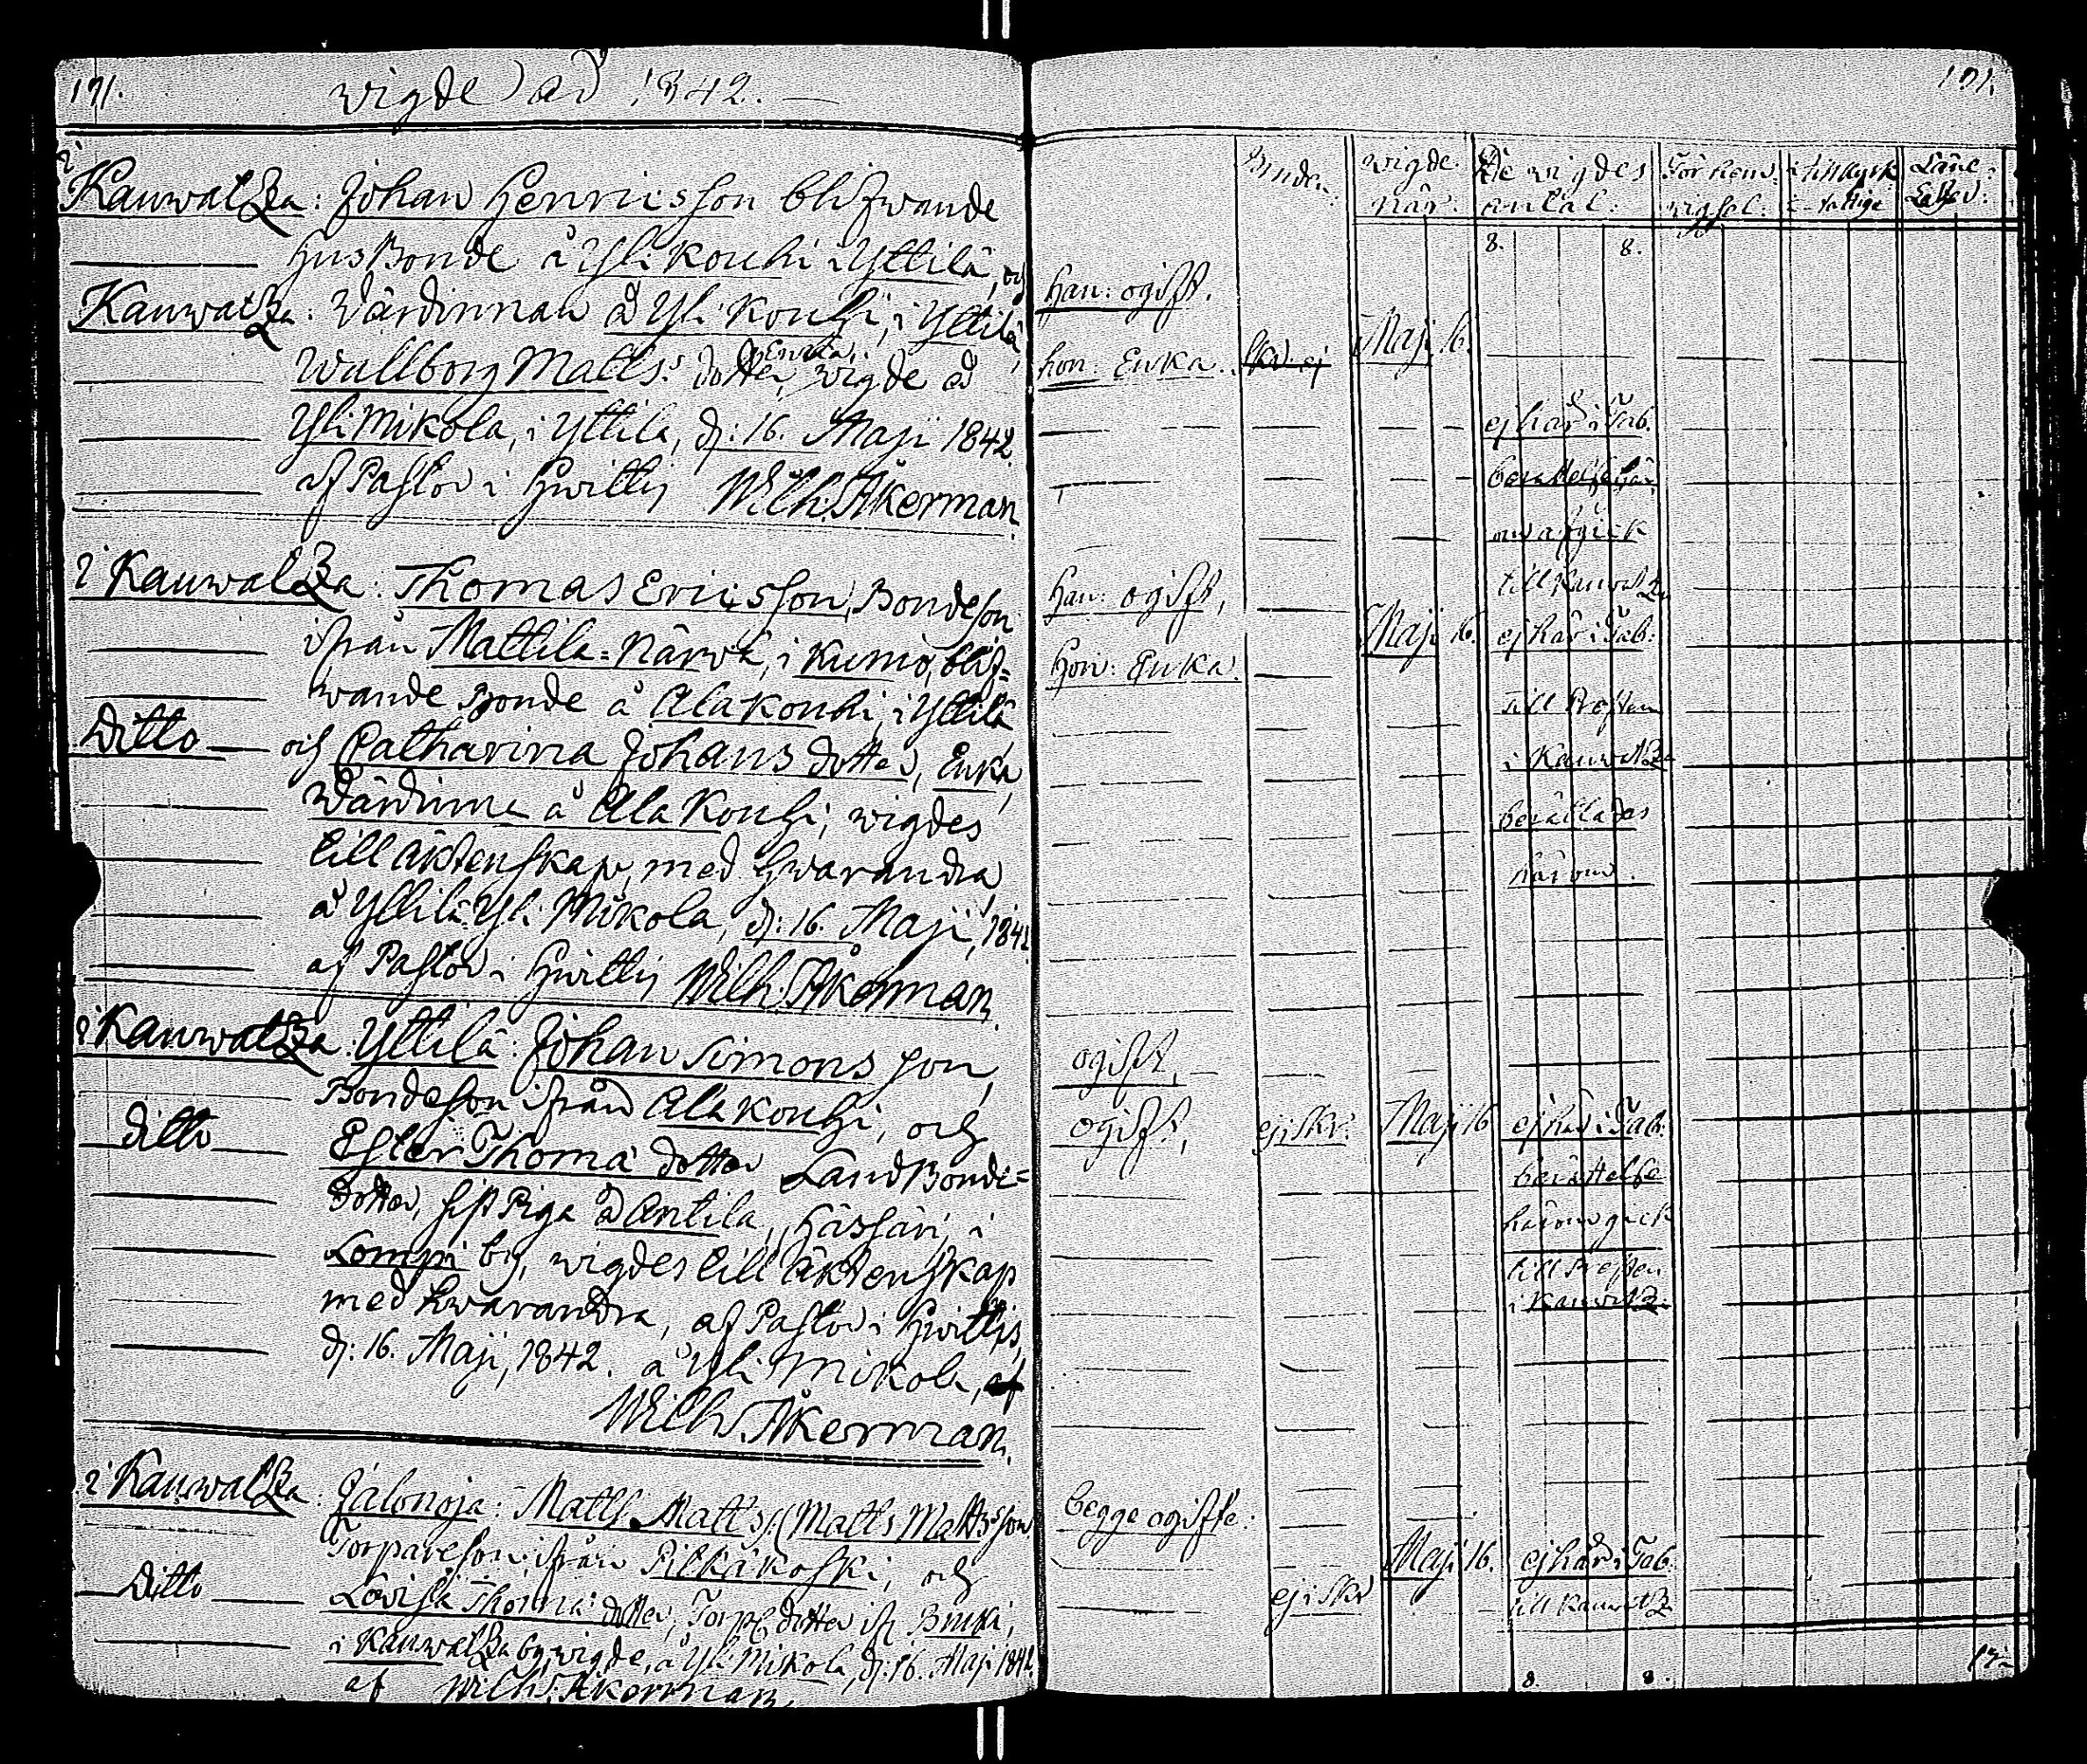 171.
wigde åd 1842.
171.
i Kauwatza: Johan Henricsson blifwande
HusBonde å Yli Kouhi i Yttilä, och
Kauwatza: Wärdinnan å Yli Kouhi, i Yttilä,
Enka,
Wallborg Matts: dotter, wigde å
Yli Mikola, i Yttilä, d: 16. Maji 1842.
af Pastor i Hwittis Wilh. Åkerman
i Kauwatza: Thomas Ericsson, Bondeson
ifrån Mattila=Närvä, i Kumo, blif=
wande Bonde å Ala Kouhi, i Yttilä
Ditto och Catharina Johans dotter, Enka,
Wärdinna å Ala Kouhi, wigdes
till äktenskap, med hwarandra
å Yttilä Yli Mikola, d: 16. Maji, 1842
af Pastor i Hwittis Wilh. Åkerman.
i Kauwatza: Yttilä: Johan Simons son,
Bondeson ifrån Ala Kouhi, och
ditto Ester Thomä dotter LandBonde=
dotter, sist Piga å Antila, i
by, wigdes till äktenskap
med hwarandra, af Pastor i Hwittis,
d: 16. Maji, 1842. å Yli Mikola, af
Wilh. Åkerman.
i Kauwatza: Jalonoja: Matth. Matts (Matts Mattsson
Torpareson ifrån Pitkäkoski, och
Ditto Lovisa Thomä dotter, Torp. dotter ifr.
i Kauwatza by, wigde, å Yli Mikola, d: 16. Maji 1842.
af Wilh. Åkerman.
wigde De wigdes
när. antal:
8. 8.
han: ogift.
hon: Enka. Maji 16.
ej här i Tab.
berättelse här
om afgick
till Kauwatza
han: ogift,
Maji 16. ej här i Tab:
hon: Enka.
till Presten
i Kauwatza
berättades
härom.
ogift,
ogift, ej skr: Maji 16 ej här i Tab:
berättelse
härom gick
till Presten
i Kauwatza
begge ogifte:
Maji 16. ej här i Tab:
ej skr till Kauwatza
8. 8.